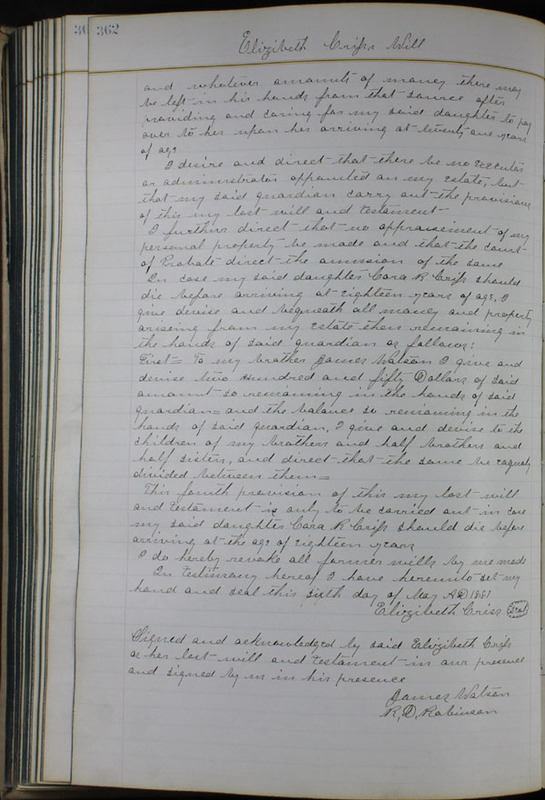 362
Elizibeth Criss Will
and whatever amounts of money there may
be left in his hands from that source after
providing and caring for my said daughter to pay
over to her upon his arriving at twenty one years
of age
I desire and direct that there be no Executor
or administrator appointed on my Estate, but
that my said guardian carry out the provisions
of this my last will and testament
I further direct that no appraisement of my
personal property be made and that the court
of Probate direct the omission of the same
In case my said daughter Cora R Criss should
die before arriving at eighteen years of age, I
give devise and bequeath all money and property
arising from my Estate then remaining in
the hands of said guardian as follows:
First = To my brother James Watson I give and
devise two Hundred and fifty Dollars of said
amount so remaining in the hands of said
guardian = and the balance so remaining in the
hands of said guardian, I give and devise to the
children of my brothers and half brothers and
half sisters, and direct that the same be equally
divided between them =
This fourth provision of this my last will
and testament is only to be carried out in case
my said daughter Cora R Criss should die before
arriving at the age of eighteen years
I do hereby revoke all former wills by me made
In Testimony hereof I have hereunto set my
hand and seal this sixth day of May AD 1881
Elizibeth Criss Seal
Signed and acknowledged by said Elizibeth Criss
as her last will and testament in our presence
and signed by us in his presence
James Watson
R. D. Robinson